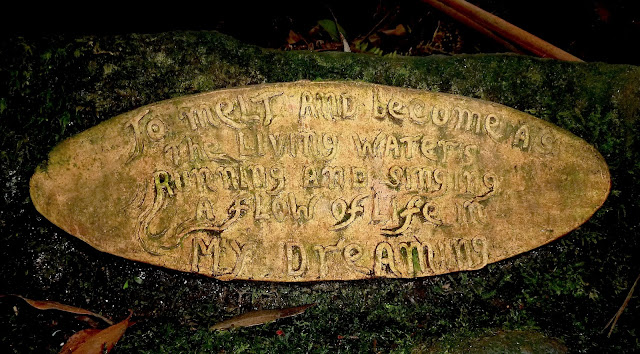 To melt AND become AS
THE LIVING WATERS
RUNNING AND SINGING
A FLOW of LIfe in
MY DreAMING